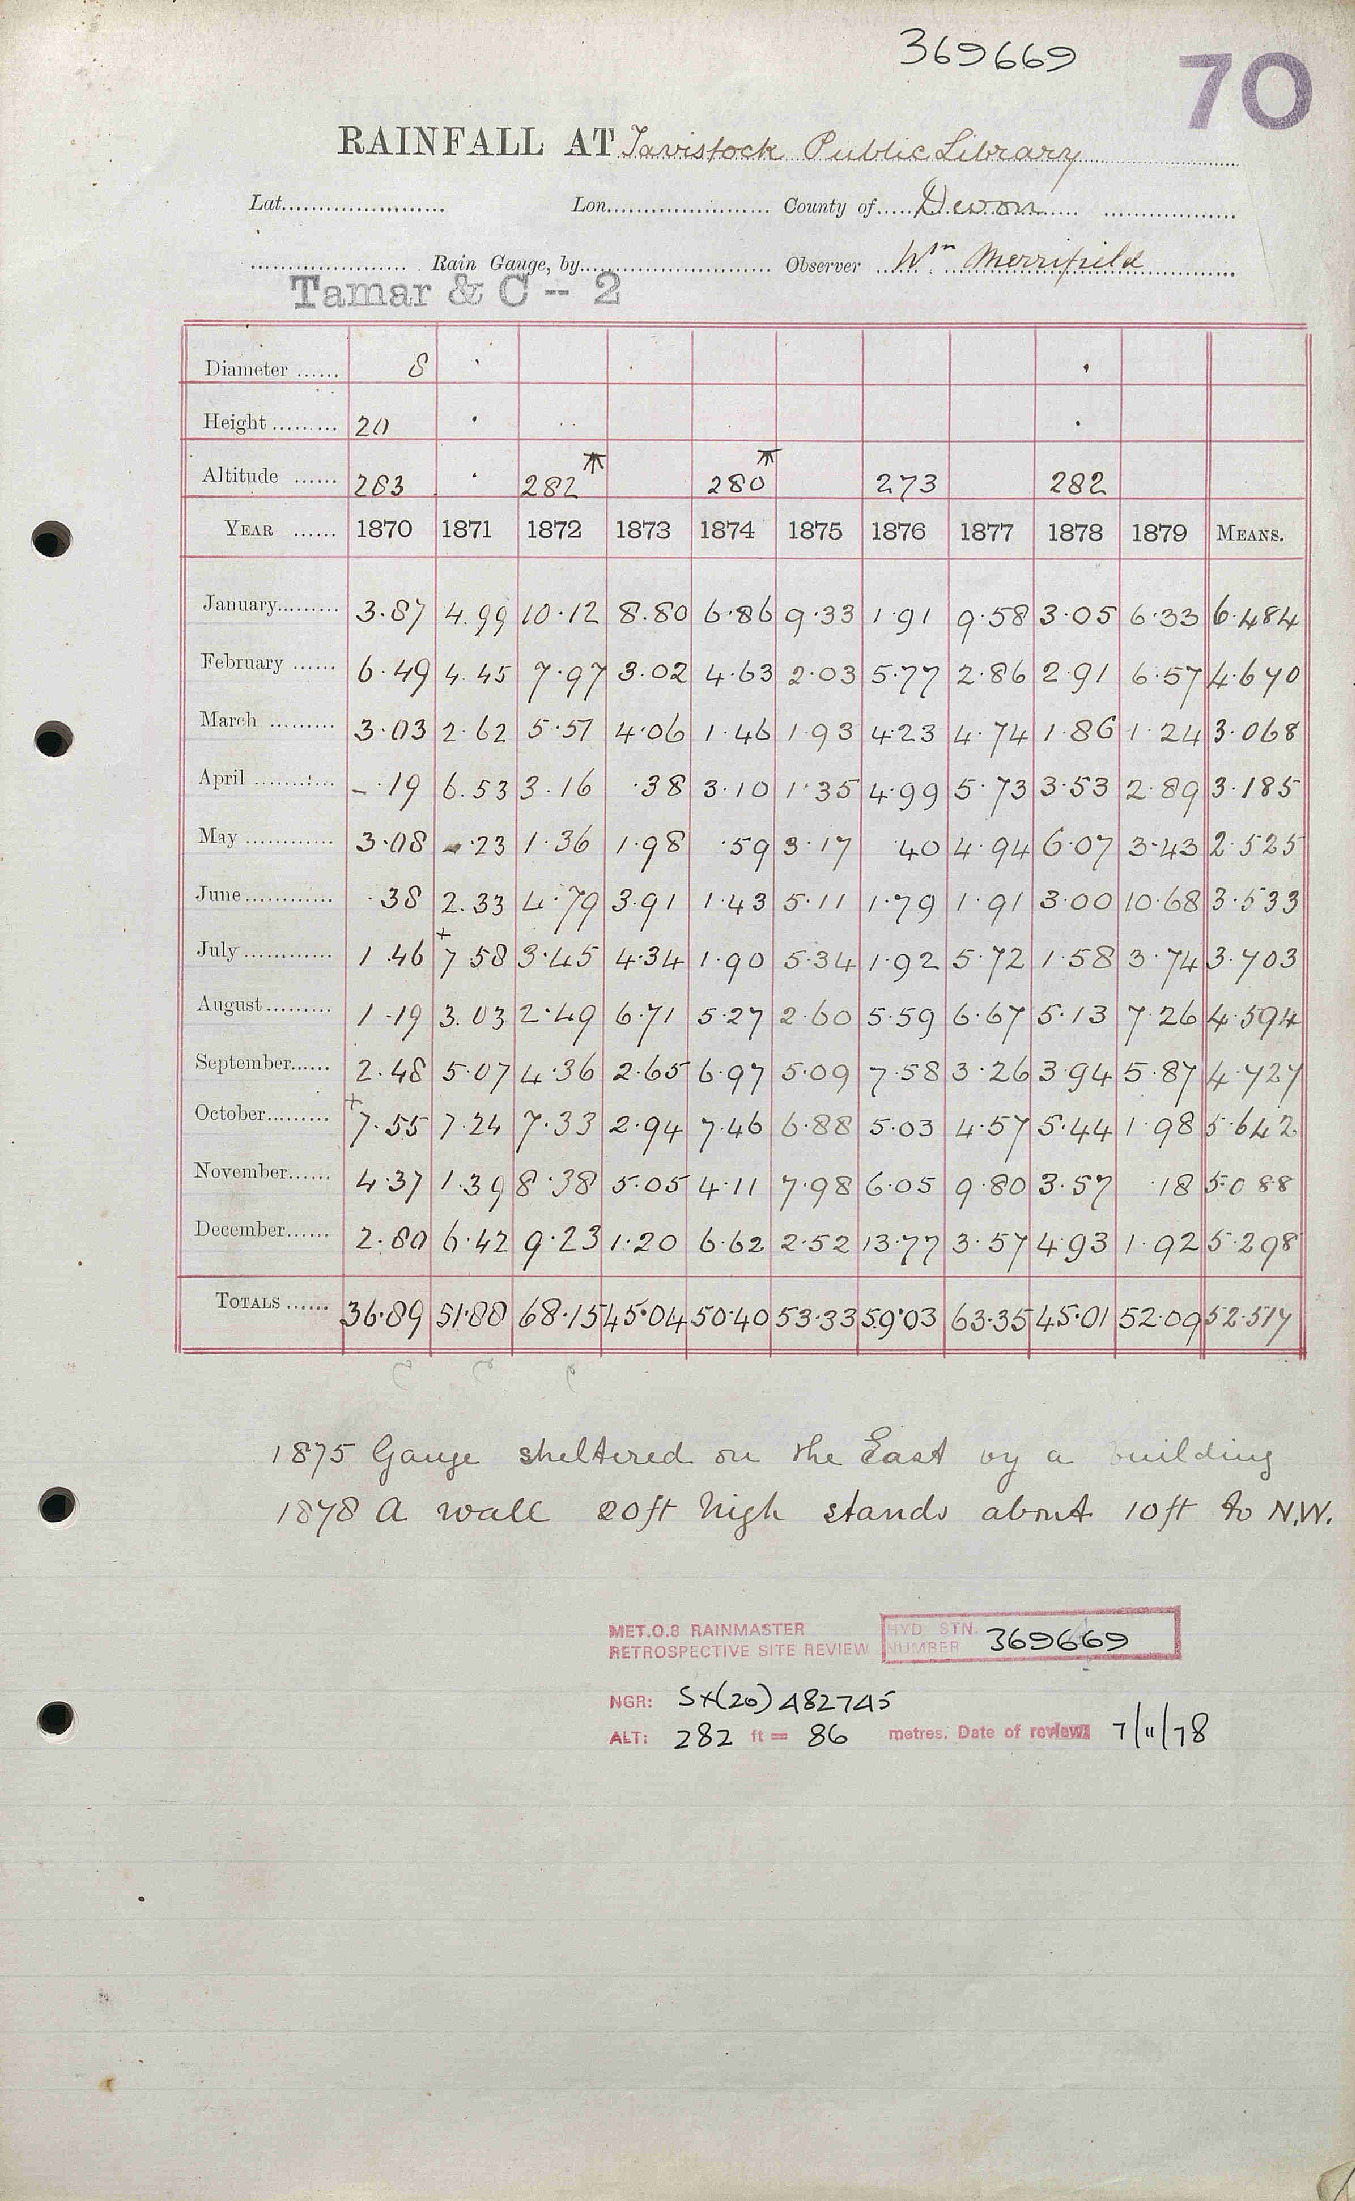 369669
70
RAINFALL AT Tavistock Public Library
Lat. Lon. County of Devon
Rain Gauge, by Observer Wm. Merrifield
Tamar & C -- 2
Diameter 8
Height 20
Altitude 283 282 280 273 282
YEAR 1870 1871 1872 1873 1874 1875 1876 1877 1878 1879 MEANS.
January 3.87 4.99 10.12 8.80 6.86 9.33 1.91 9.58 3.05 6.33 6.484
February 6.49 4.45 7.97 3.02 4.63 2.03 5.77 2.86 2.91 6.57 4.670
March 3.03 2.62 5.51 4.06 1.46 1.93 4.23 4.74 1.86 1.24 3.068
April -.19 6.53 3.16 .38 3.10 1.35 4.99 5.73 3.53 2.89 3.185
May 3.08 .23 1.36 1.98 .59 3.17 .40 4.94 6.07 3.43 2.525
June .38 2.33 4.79 3.91 1.43 5.11 1.79 1.91 3.00 10.68 3.533
July 1.46 +7.58 3.45 4.34 1.90 5.34 1.92 5.72 1.58 3.74 3.703
August 1.19 3.03 2.49 6.71 5.27 2.60 5.59 6.67 5.13 7.26 4.594
September 2.48 5.07 4.36 2.65 6.97 5.09 7.58 3.26 3.94 5.87 4.727
October +7.55 7.24 7.33 2.94 7.46 6.88 5.03 4.57 5.44 1.98 5.642
November 4.37 1.39 8.38 5.05 4.11 7.98 6.05 9.80 3.57 .18 5.088
December 2.80 6.42 9.23 1.20 6.62 2.52 13.77 3.57 4.93 1.92 5.298
TOTALS 36.89 51.88 68.15 45.04 50.40 53.33 59.03 63.35 45.01 52.09 52.517
1875 Gauge sheltered on the East by a building
1878 A wall 20ft high stands about 10ft to N.W.
MET.O.8 RAINMASTER
RETROSPECTIVE SITE REVIEW
HYD STN.
NUMBER 369669
NGR: SX(20)482745
ALT: 282 ft = 86 metres. Date of review: 7/11/78